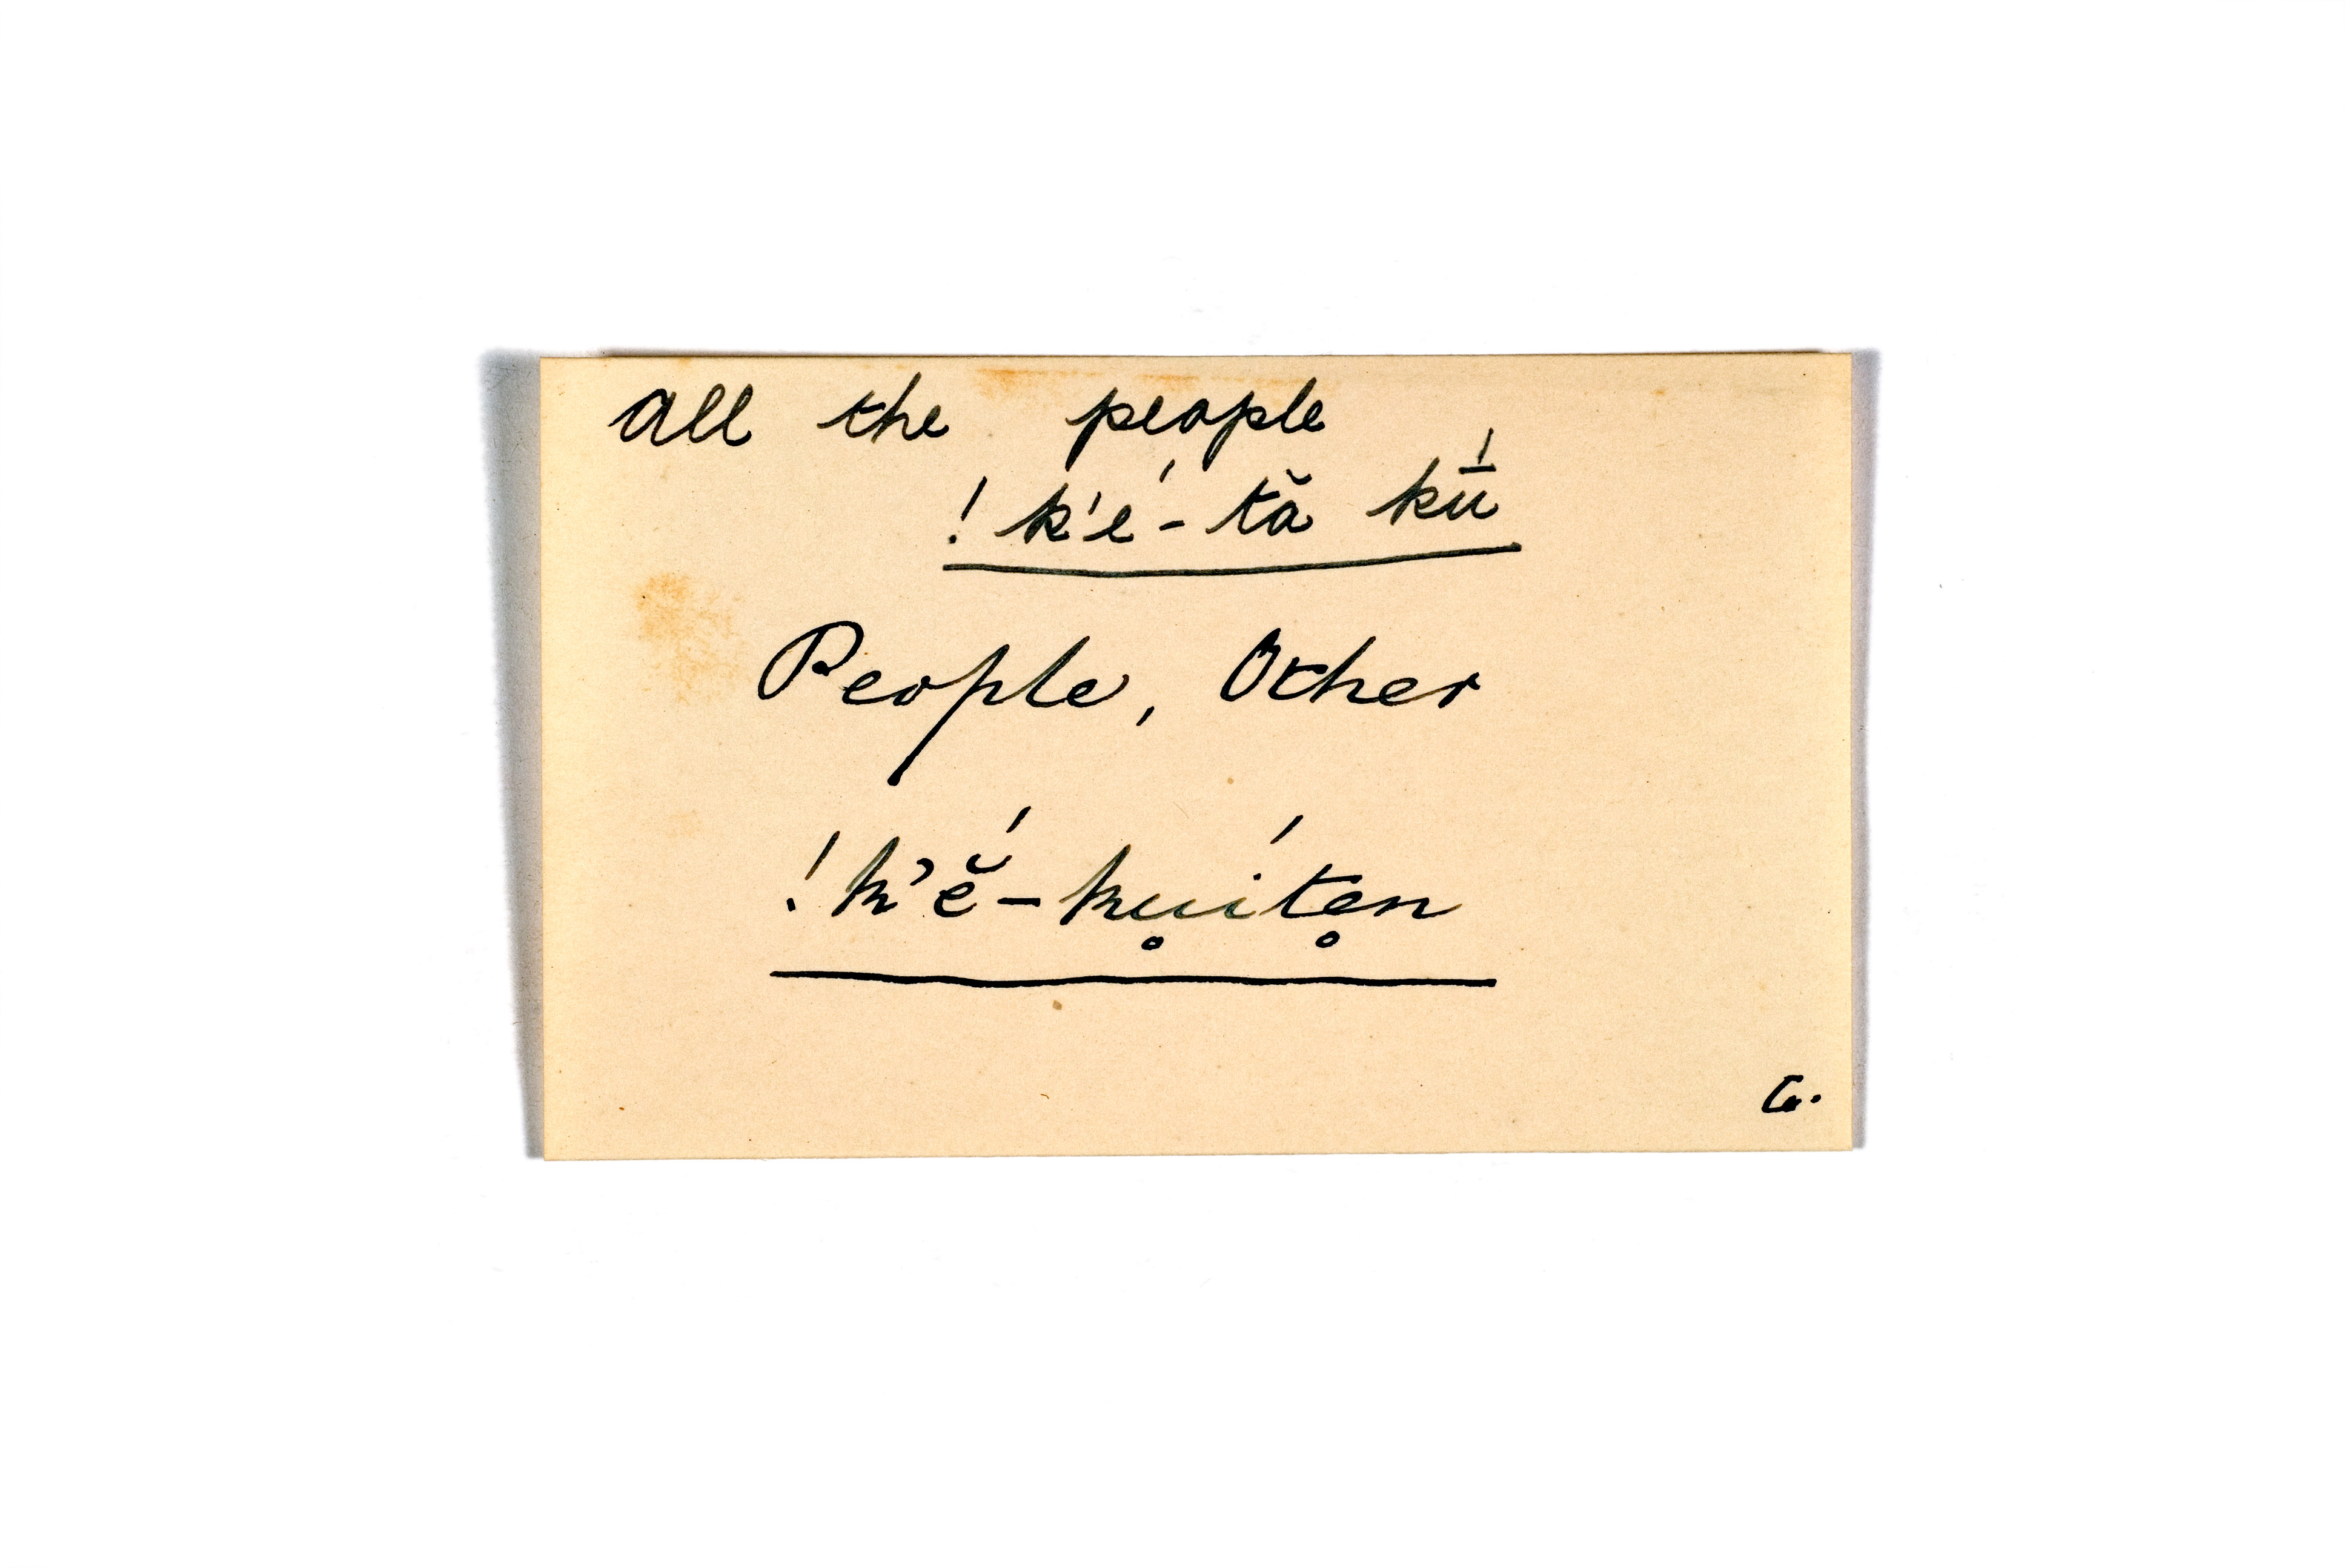 All the people
! k'é-tă kū́
People, Other
! k’ĕ́-ku̥íte̥n
G.